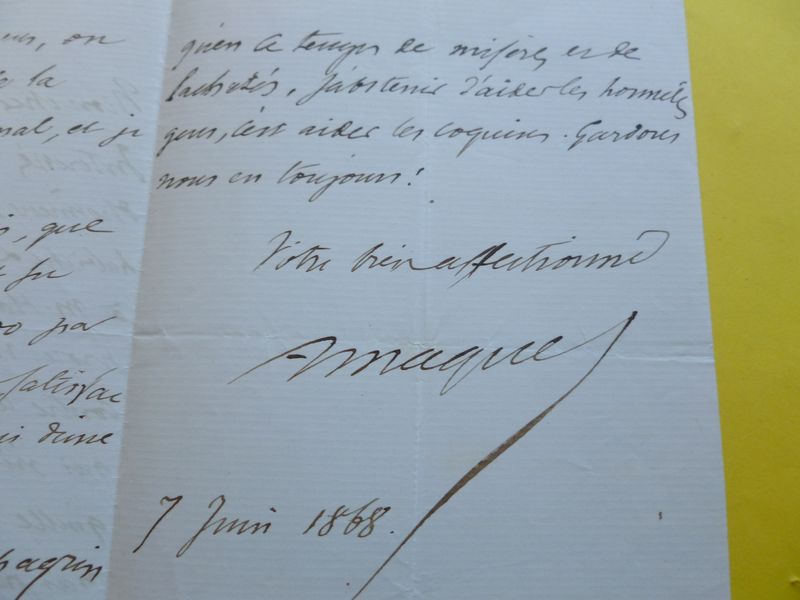 on
la
mal, et je
que
par
satisfac
d'une
chagrin
qu'en ce temps de misères et de
lachetés, s'abstenir d'aider les honnêtes
gens, c'est aider les coquins. Gardons
nous en toujours!
Votre bien affectionné
AMaquet
7 Juin 1868.